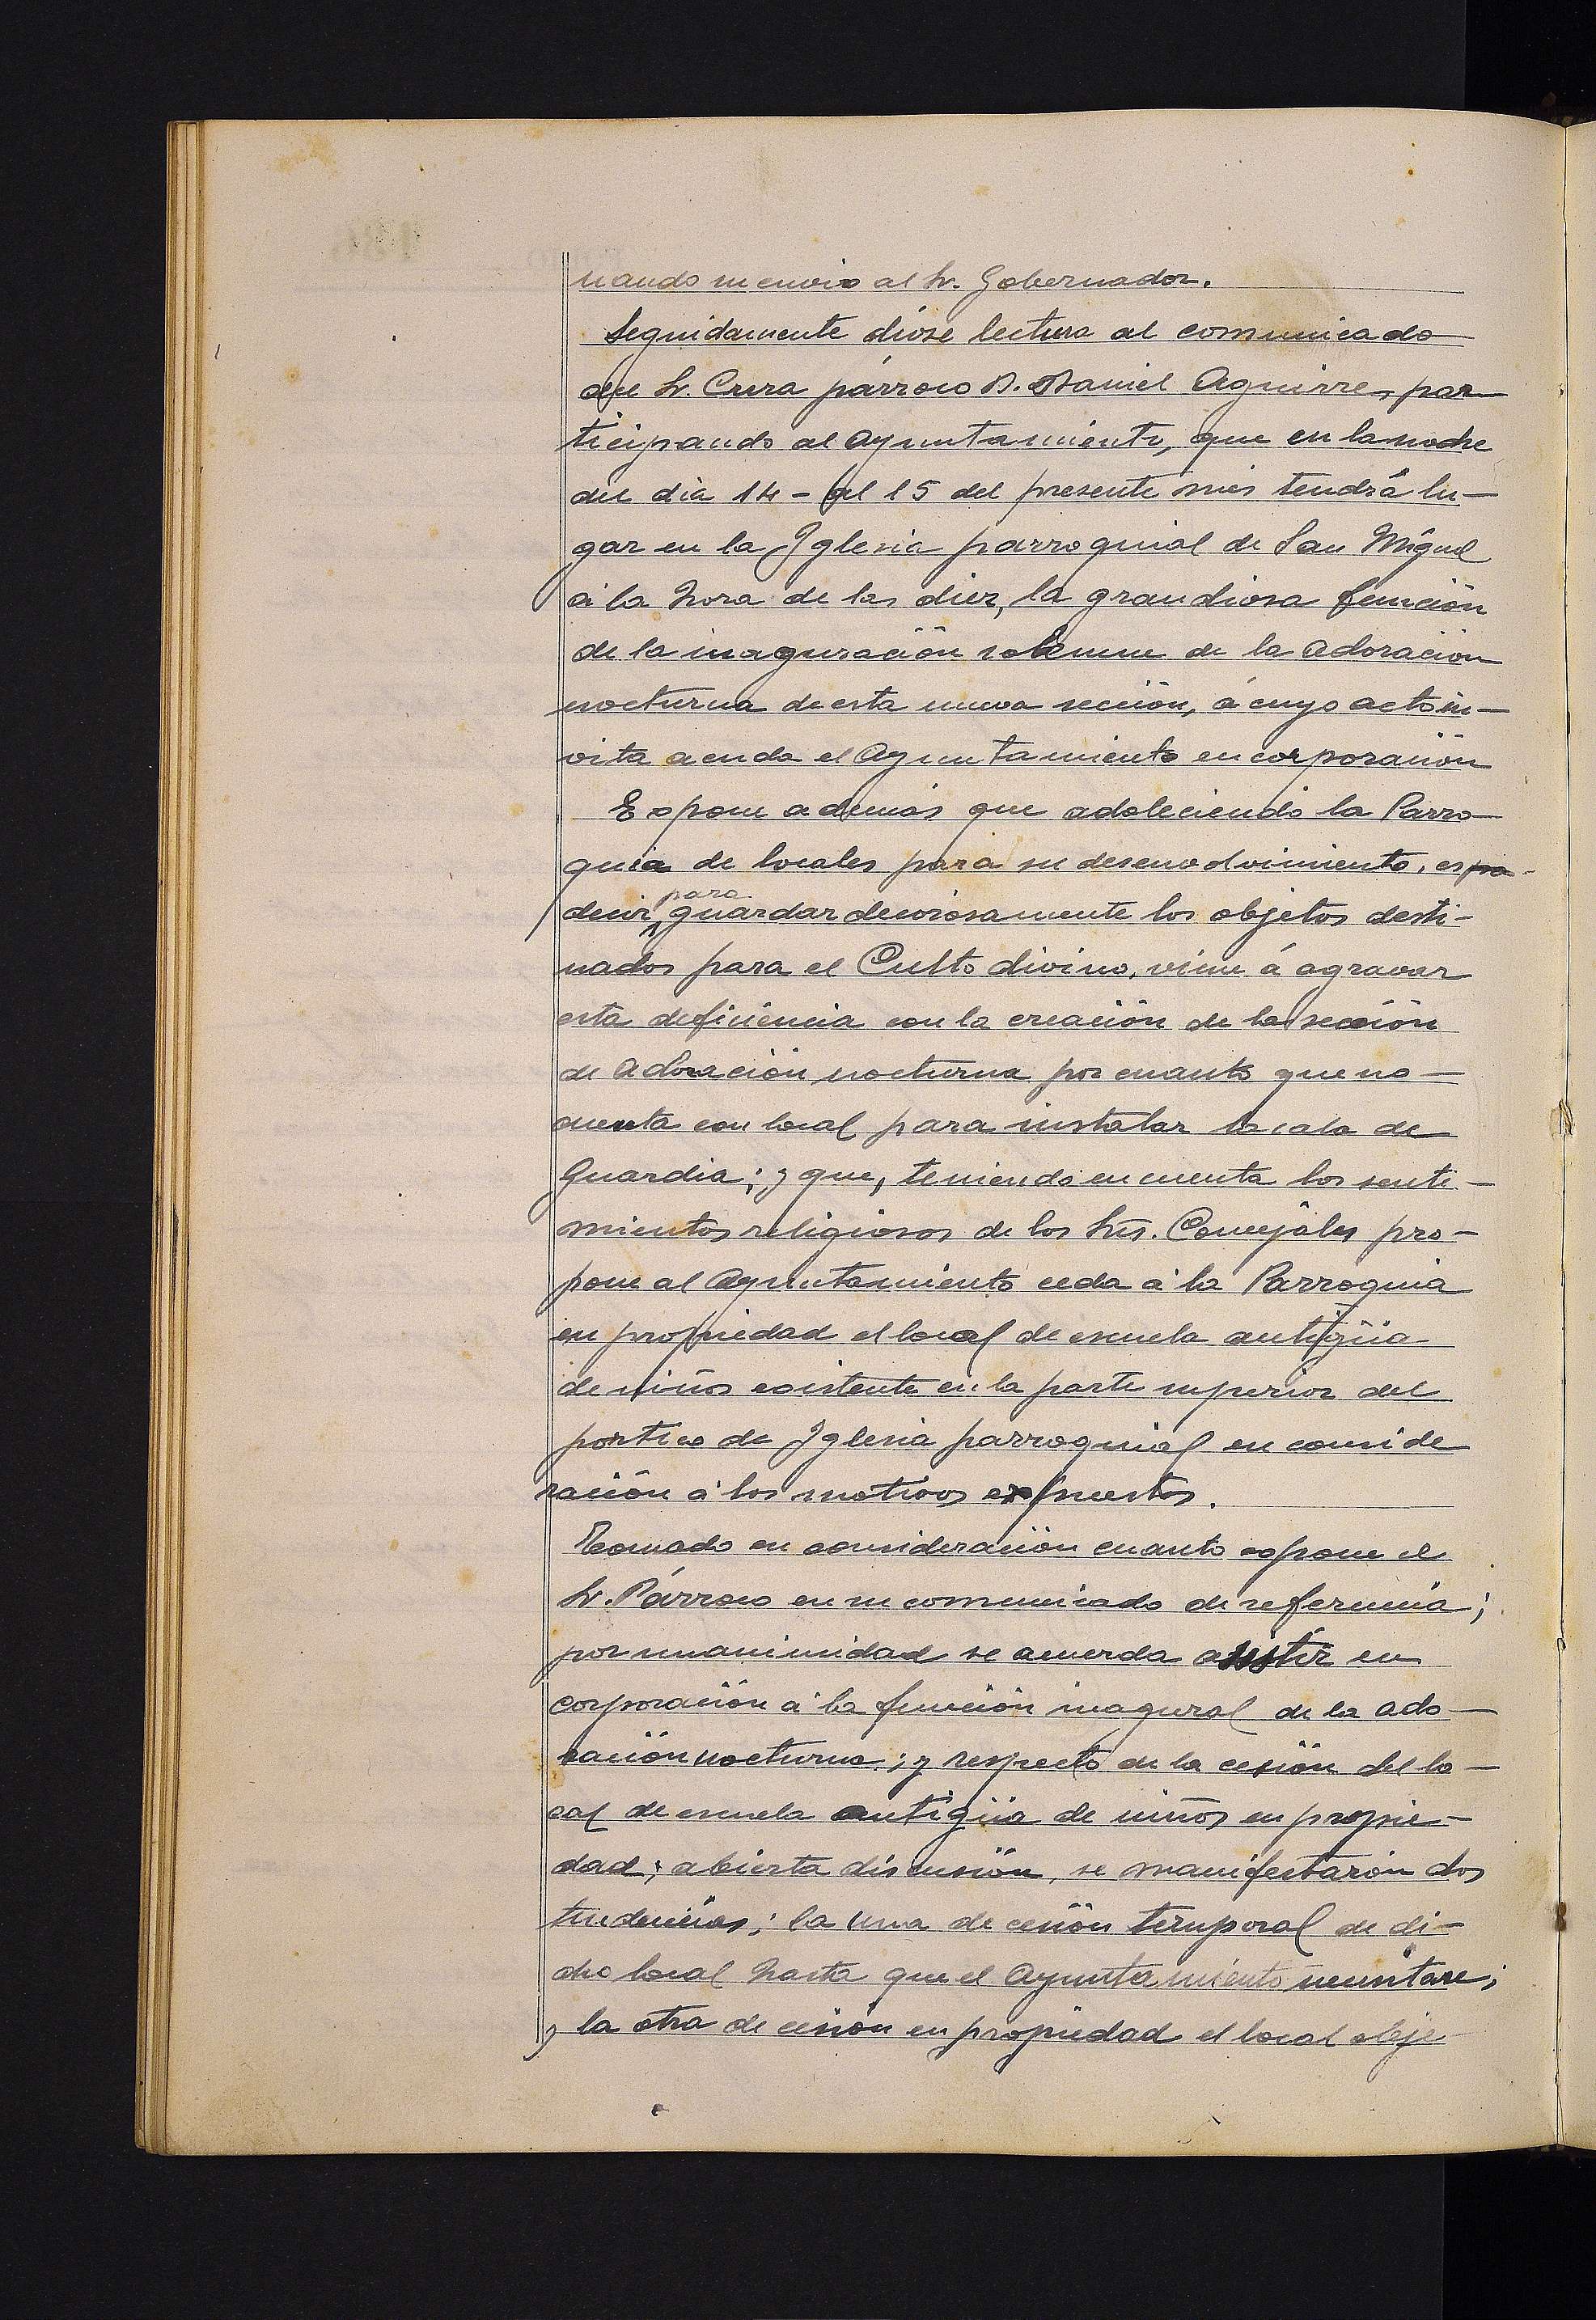 nando su envio al Sr. Gobernador.
Seguidamente dióse lectura al comunicado
del Sr. Cura párroco D. Daniel Aguirre, par-
ticipando al Ayuntamiento, que en la noche
del dia 14 - al 15 del presente mes tendrá lu-
gar en la Iglesia parroquial de San Miguel
á la hora de las diez, la grandiosa función
de la inaguración solemne de la adoración
nocturna de esta nueva sección, á cuyo acto in-
vita acuda el Ayuntamiento en corporación
Expone además que adoleciendo la Parro-
quia de locales para su desenvolvimiento, es
decir, para guardar decorosamente los objetos desti-
nados para el Culto divino, viene á agravar
esta deficiencia con la creación de la sección
de Adoración nocturna por cuanto que no
cuenta con local para instalar la sala de
Guardia; y que, teniendo en cuenta los senti-
mientos religiosos de los Srs. Concejales pro-
pone al Ayuntamiento ceda á la Parroquia
en propiedad el local de escuela antigüa
de niños existente en la parte superior del
portico de Iglesia parroquial en conside
ración á los motivos expuestos.
Tomado en consideración cuanto expone el
Sr. Párroco en su comunicado de referencia;
por unanimidad se acuerda asistir en
corporación á la función inagural de la ado-
ración nocturna; y respecto de la cesión del lo-
cal de escuela antigüa de niños en propie-
dad; abierta discusión, se manifestarón dos
tendencias; la una de cesión temporal de di-
cho local hasta que el Ayuntamiento necesitare;
y la otra de cesión en propiedad el local obje